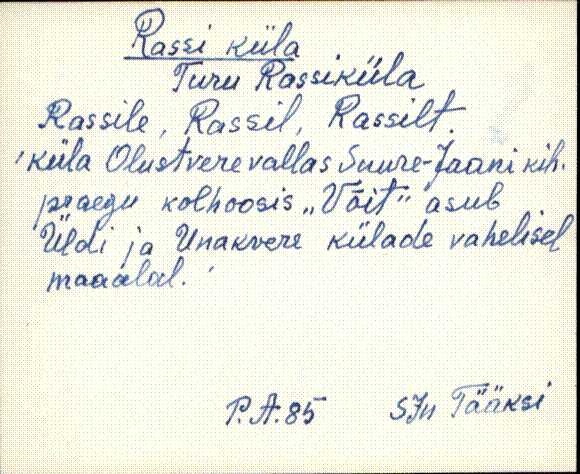 Rassi küla
Turu Rassiküla
Rassile, Rassil, Rassilt.
'küla Olustvere vallas Suure-Jaani kih.
praegu kolhoosis „Võit" asub
Üldi ja Unakvere külade vahelisel
maaalal.'
P.A.85 SJn Tääksi